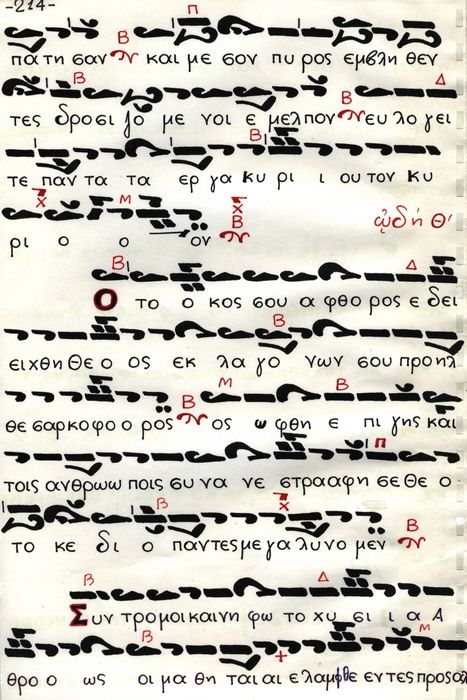 -214-
πατησαν και μεσον πυρος εμβληθεν
τες δροσιζομενοι εμελπον ευλογει
τε παντα τα εργα κυριιουτον κυ
ριοοον
ᾠδή Θ'
Ο τοοκος σου αφθορος εδει
ειχθη Θεοος εκ λαγονων σου προηλ
θε σαρκοφοορος ος ωφθη επιγης και
τοις ανθρωωποις συνανεστρααφη σε Θεο
τοκε διο παντες μεγαλυνομεν
Συντρομοι και νηφωτοχυσιια Α
θροοως οι μαθηται αι ελαμφθεεντες προσολ